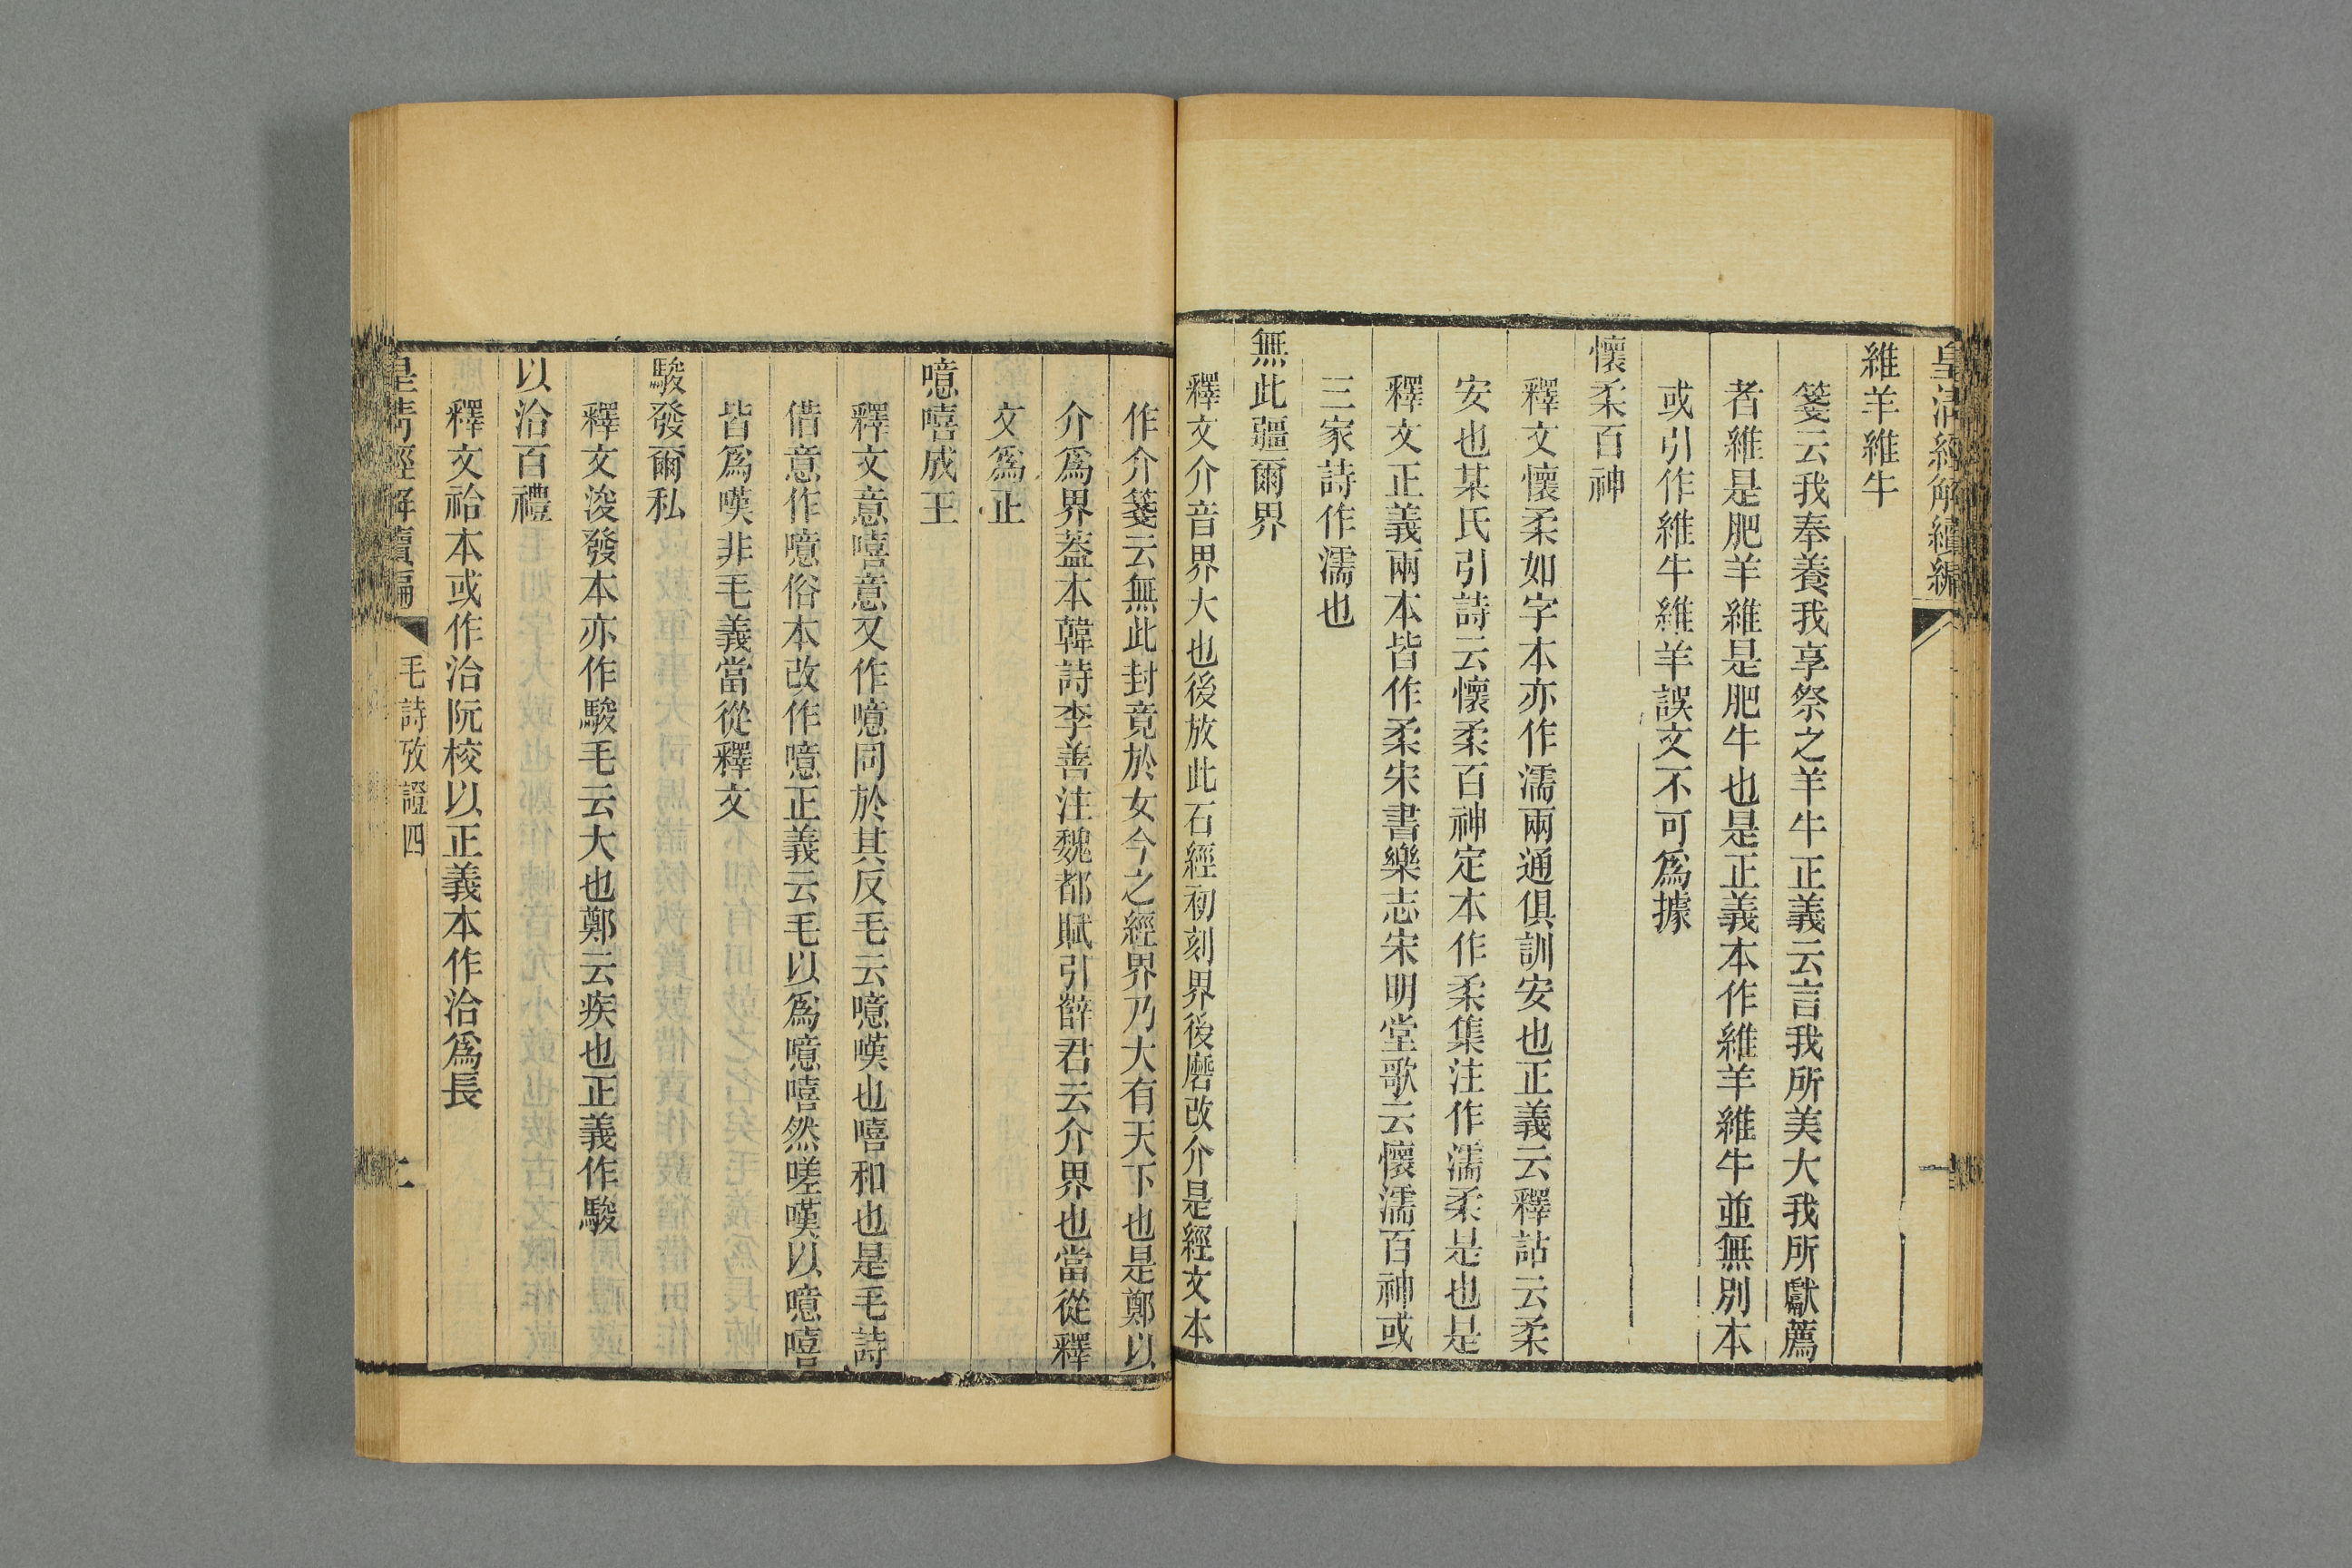 皇清經解續編
維羊維牛
箋云我奉養我享祭之羊牛正義云言我所美大我所獻薦
者維是肥羊維是肥牛也是正義本作維羊維牛並無別本
或引作維牛維羊誤文不可爲據
懷柔百神
釋文懷柔如字本亦作濡兩通俱訓安也正義云釋詁云柔
安也某氏引詩云懷柔百神定本作柔集注作濡柔是也是
釋文正義兩本皆作柔宋書樂志宋明堂歌云懷濡百神或
三家詩作濡也
無此疆爾界
釋文介音界大也後放此石經初刻界後磨改介是經文本
作介箋云無此封竟於女今之經界乃大有天下也是鄭以
介爲界葢本韓詩李善注魏都賦引薛君云介界也當從釋
文爲正
噫嘻成王
釋文意嘻意又作噫同於其反毛云噫嘆也嘻和也是毛詩
借意作噫俗本改作噫正義云毛以爲噫嘻然嗟嘆以噫嘻
皆爲嘆非毛義當從釋文
駿發爾私
釋文浚發本亦作駿毛云大也鄭云疾也正義作駿
以洽百禮
釋文祫本或作洽阮校以正義本作洽爲長
皇清經解續編
毛詩攷證四